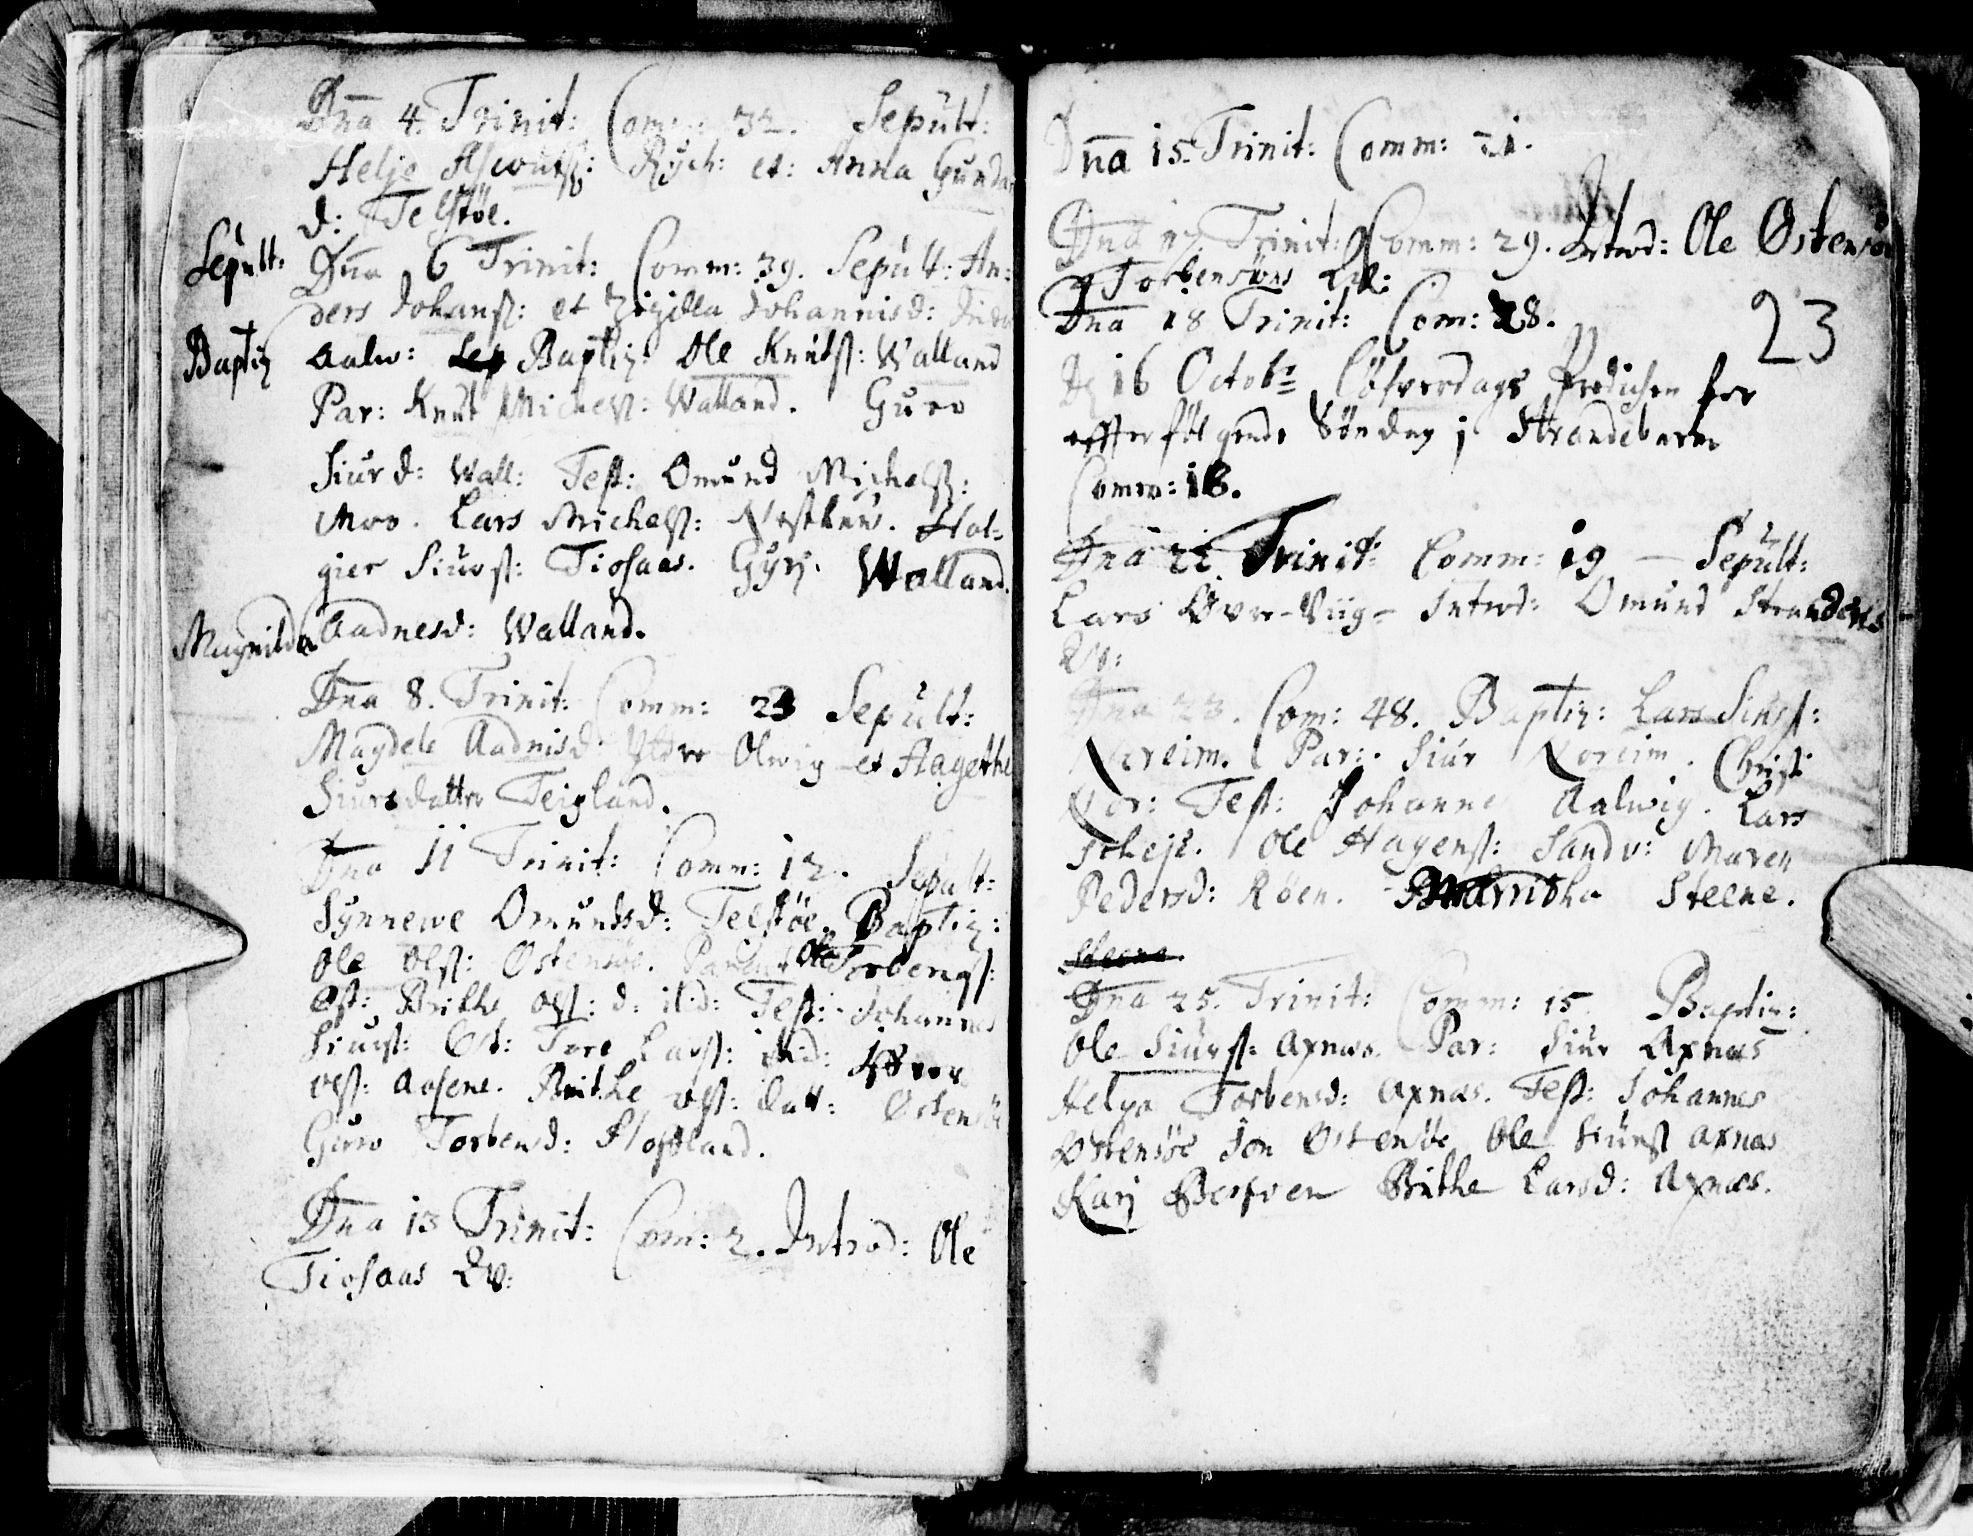 Dna 4. Trinit: Comm: 32. Sepult:
Helje et: Anna
d: Telstöe.
Sepult: Dna 6 Trinit: Comm: 39. Sepult: An:
ders Johanß: et Zizilla Johannisd:
Baptiz Aalw: Baptiz: Ole Knutß: Walland
Par: Knut Michelß: Walland. Guro
Siurd: Wall: Teß: Omund Michelß:
Moo. Lars Michelß: Hol-
gier Siurß: Tiosaas. Gyrj. Walland.
Magnilda Aadnesd: Walland.
Dna 8. Trinit: Comm: 23 Sepult:
Magdele Aadnisd: Olwig et Aagethe
Siursdatter Teigland.
Dna 11 Trinit: Comm: 12. Sepult:
Synnewe Omundsd: Telstöe. Baptiz:
Ole Olß: Ostensöe. Parent Ole Torbenß:
Ost: Brithe Olß: d: ibd: Teß: Johannes
Siurß: Ost: Tore Larß: ibid:
Olß: Brithe Olß: datt: Ostensö
Guro Torbensd:
Dna 13 Trinit: Com: 2. Introd: Ole
Tiosaas Qv:
Dna 15. Trinit: Comm: 21.
Dna 17. Trinit: Comm: 29. Introd: Ole Ostensöe
Torbensöns Qv:
Dna 18 Trinit: Com: 28.
23
16 Octobr Löfverdags Predichen for
effterfölgende Söndag j Strandebarm
Comm: 18.
Dna 22 Trinit: Comm: 19 — Sepult:
Lars Övre-Viig - Introd: Omund
Qv:
Dna 23. Com: 48. Baptiz: Lars Siurß:
Noreim. Par: Siur Noreim. Christ:
Nor: Teß: Johanne Aalwig. Lars
Ole Hagenß: Sandv: Maren
Pedersd: Röen. Steene.
Steene.
Dna 25. Trinit: Comm: 15. Baptiz:
Ole Siurß: Axnæs. Par: Siur Axnæs
Helga Torbensd: Axnæs. Teß: Johannes
Ostensöe Jon Ostensöe Ole Siurß Axnæs
Karj Berfven Brithe Larsd: Axnæs.